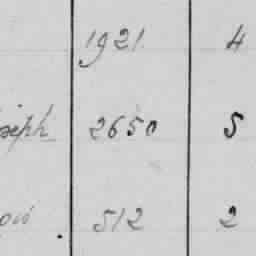 1921. 4
seph 2650 5
512 2